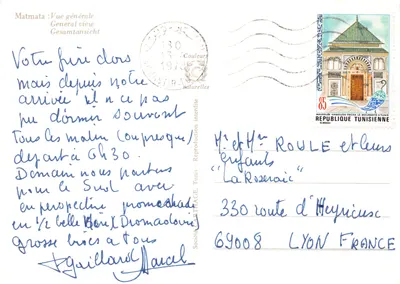 Matmata : Vue générale
General view
Gesamtansicht
Votre frère dors
mais depuis notre
arrivée il n'a pas
pu dormir souvent
tous les matin (ou presque)
depart à 6h30.
Demain nous partons
pour le Sud avec
en perspective promenade
en 1/2 (Dromadaire)
Grosse bises a tous
Gaillard Marcel
85
REPUBLIQUE TUNISIENNE
Mr et Mme ROULE et leurs
enfants
"La Roseraie"
330 route d'Heyrieux
69008 LYON FRANCE